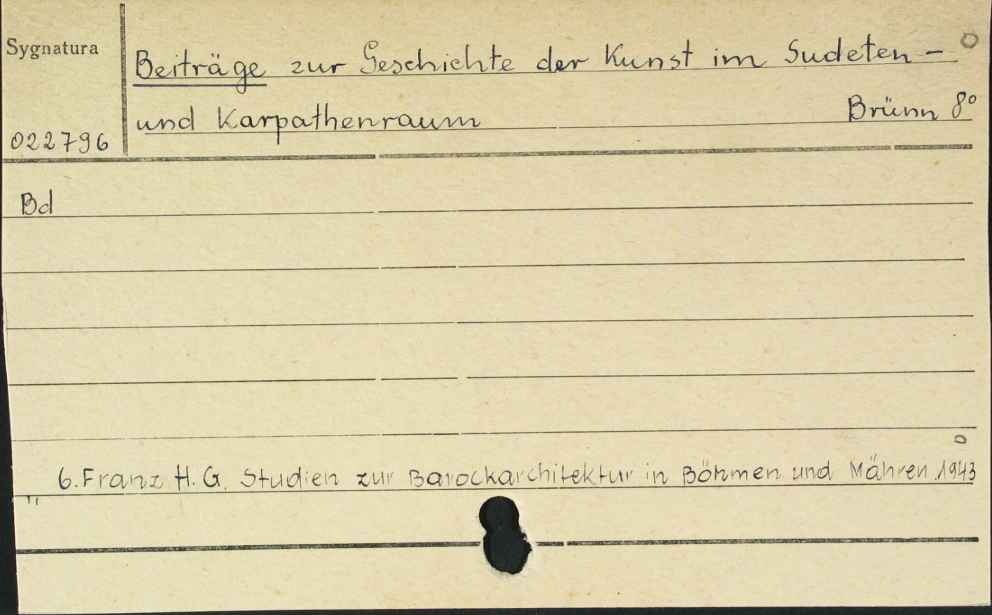 Sygnatura
Beiträge zur Geschichte der Kunst im Sudeten-
und Karpathenraum Brünn 8°
022796
Bd
6. Franz H. G. Studien zur Barockarchitektur in Böhmen und Mähren. 1943